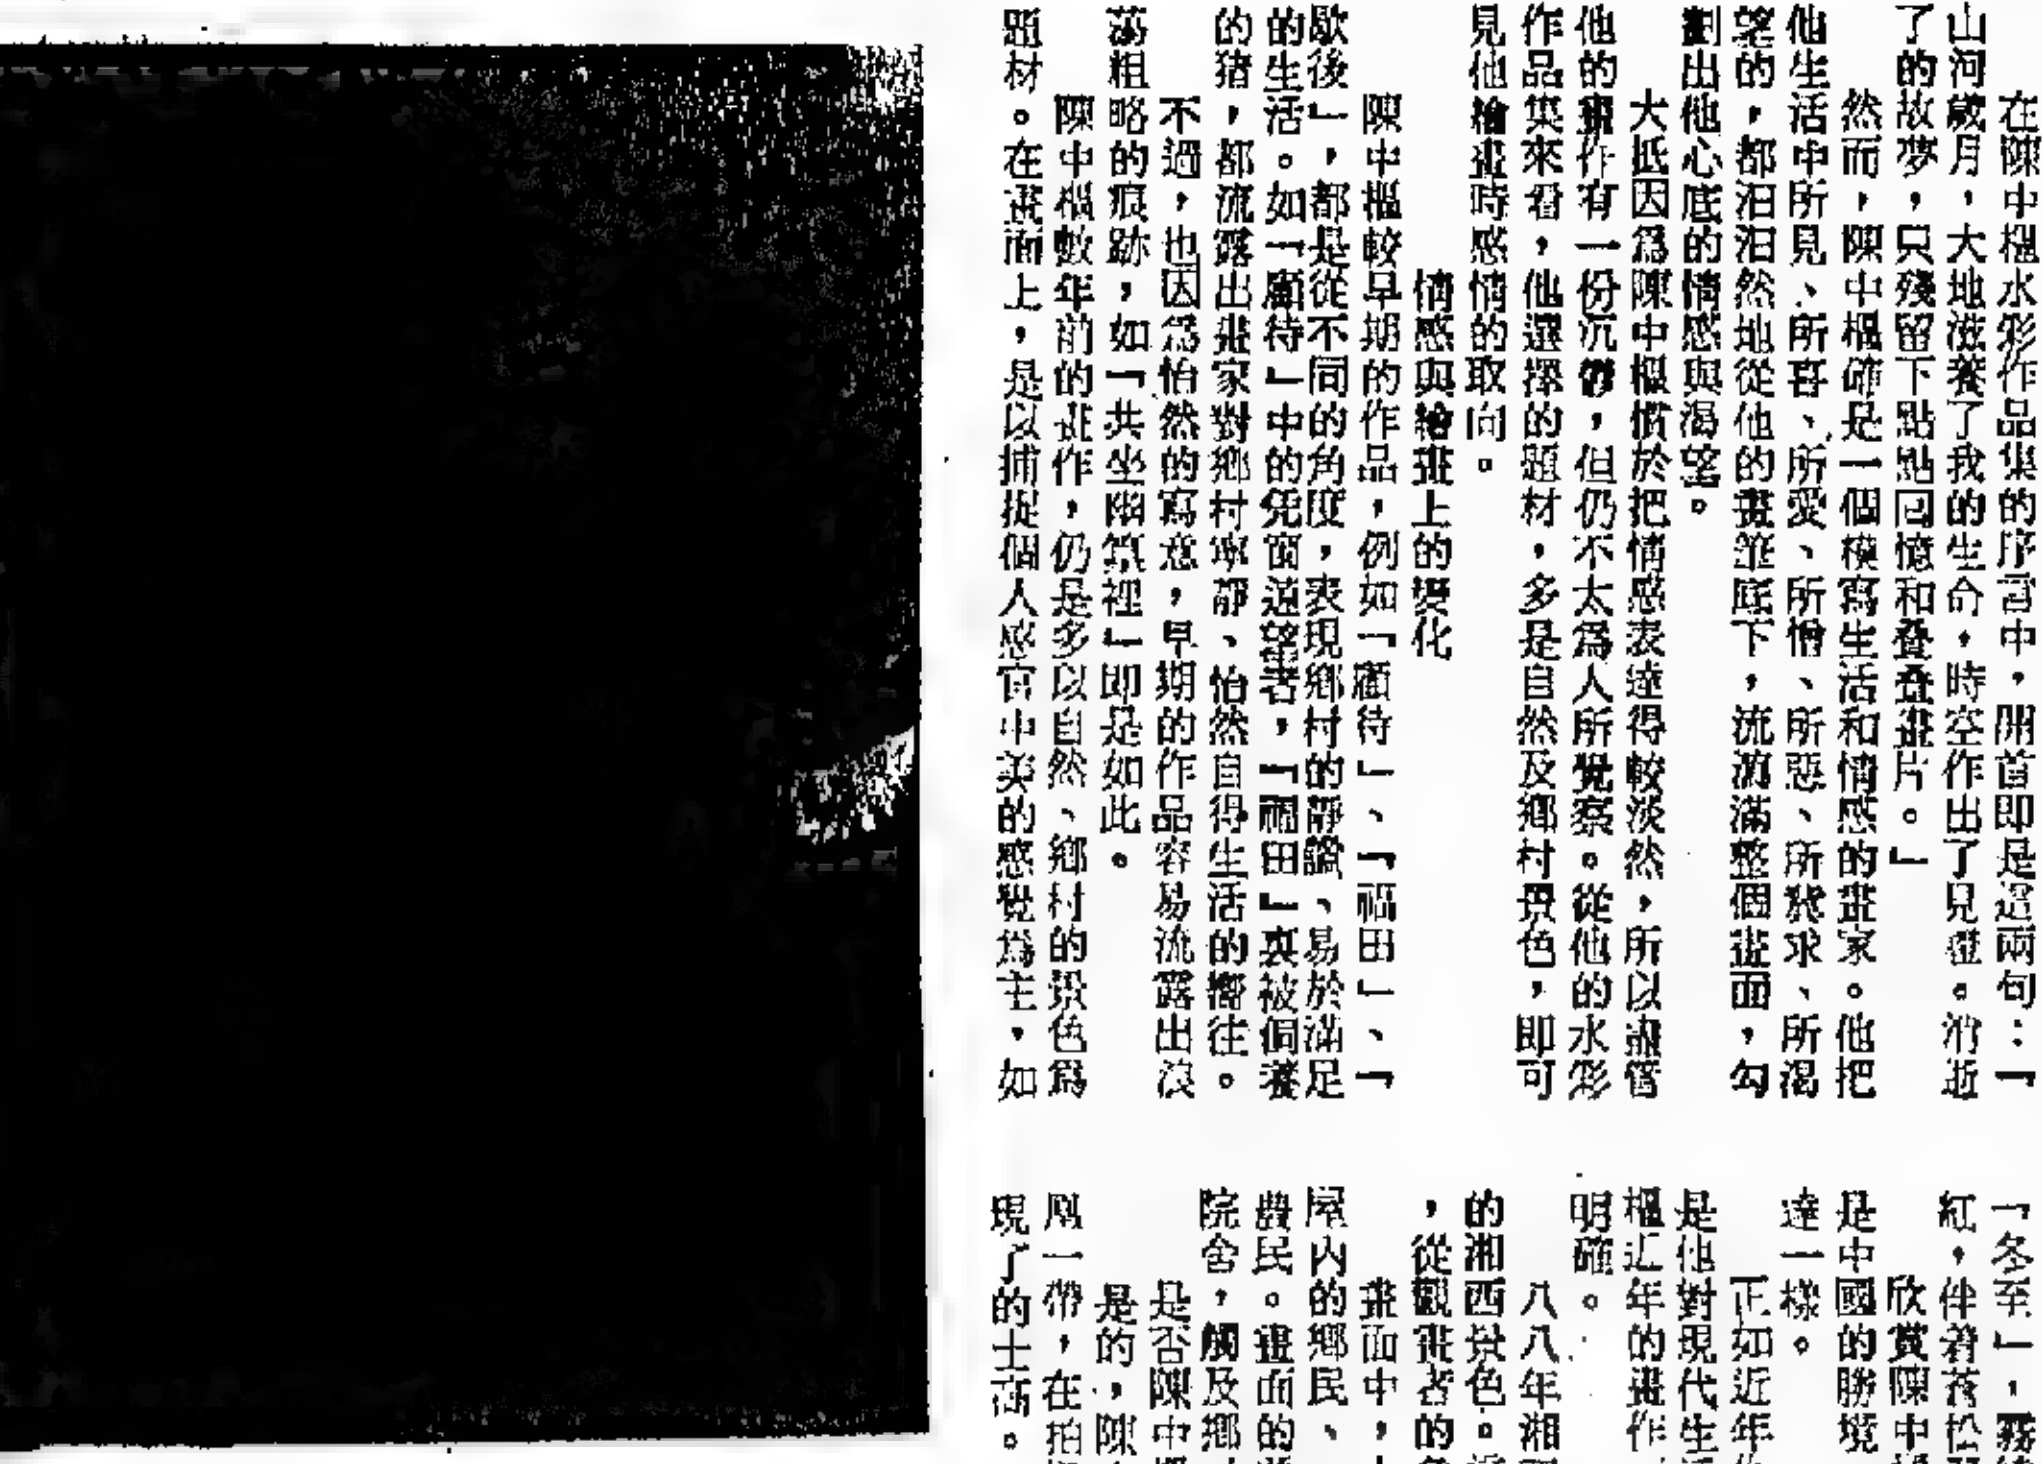 在陳中樞水彩作品集的序言中，開首即是這兩句：「
山河歲月，大地滋養了我的生命，時空作出了見證。消逝
了的故夢，只殘留下點點回憶和叠叠畫片。」
然而，陳中樞確是一個模寫生活和情感的畫家。他把
他生活中所見、所喜、所愛、所憎、所惡、所求、所渴
望的，都汩汩然地從他的畫筆底下，流瀉滿整個畫面，勾
劃出他心底的情感與渴望。
大抵因爲陳中樞慣於把情感表達得較淡然，所以盡管
他的畫作有一份沉鬱，但仍不太爲人所覺察。從他的水彩
作品集來看，他選擇的題材，多是自然及鄉村景色，即可
見他繪畫時感情的取向。
情感與繪畫上的變化
陳中樞較早期的作品，例如「顧待」、「福田」、「
歇後」，都是從不同的角度，表現鄉村的靜謐、易於滿足
的生活。如「顧待」中的凭窗遠望者，「福田」裏被飼養
的猪，都流露出畫家對鄉村寧靜、怡然自得生活的嚮往。
不過，也因爲怡然的寫意，早期的作品容易流露出浪
蕩粗略的痕跡，如「共坐幽篁裡」即是如此。
陳中樞數年前的畫作，仍是多以自然、鄉村的景色爲
題材。在畫面上，是以捕捉個人感官中美的感覺爲主，如
「冬至」，霧
紅，伴着蒼松
欣賞陳中
是中國的勝境
達一樣。
正如近年
是他對現代生
樞近年的畫作
明確。
八八年湘
的湘西景色。
，從觀畫者的
畫面中，
屋內的鄉民、
農民。畫面的
院舍，觸及鄉
是否陳中
是的，陳
凰一帶，在拍
現了的士高。